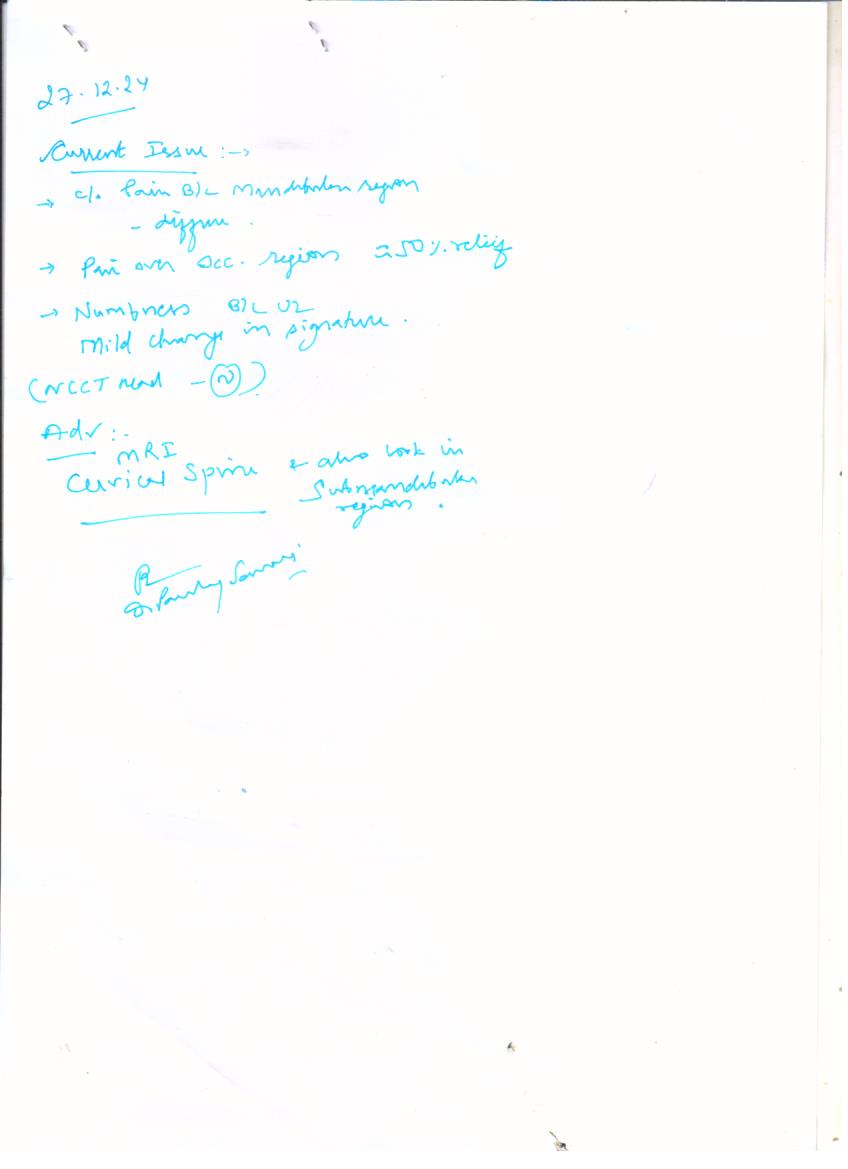 27.12.24
Current Issue :→
→ c/o Pain B/L Mandibular region
- diffuse .
→ Pain over Occ. region ≈50% relief
→ Numbness B/L UL
Mild change in signature .
(NCCT head - (N))
Adv :-
MRI
Cervical Spine & also look in
Submandibular
region .
Dr